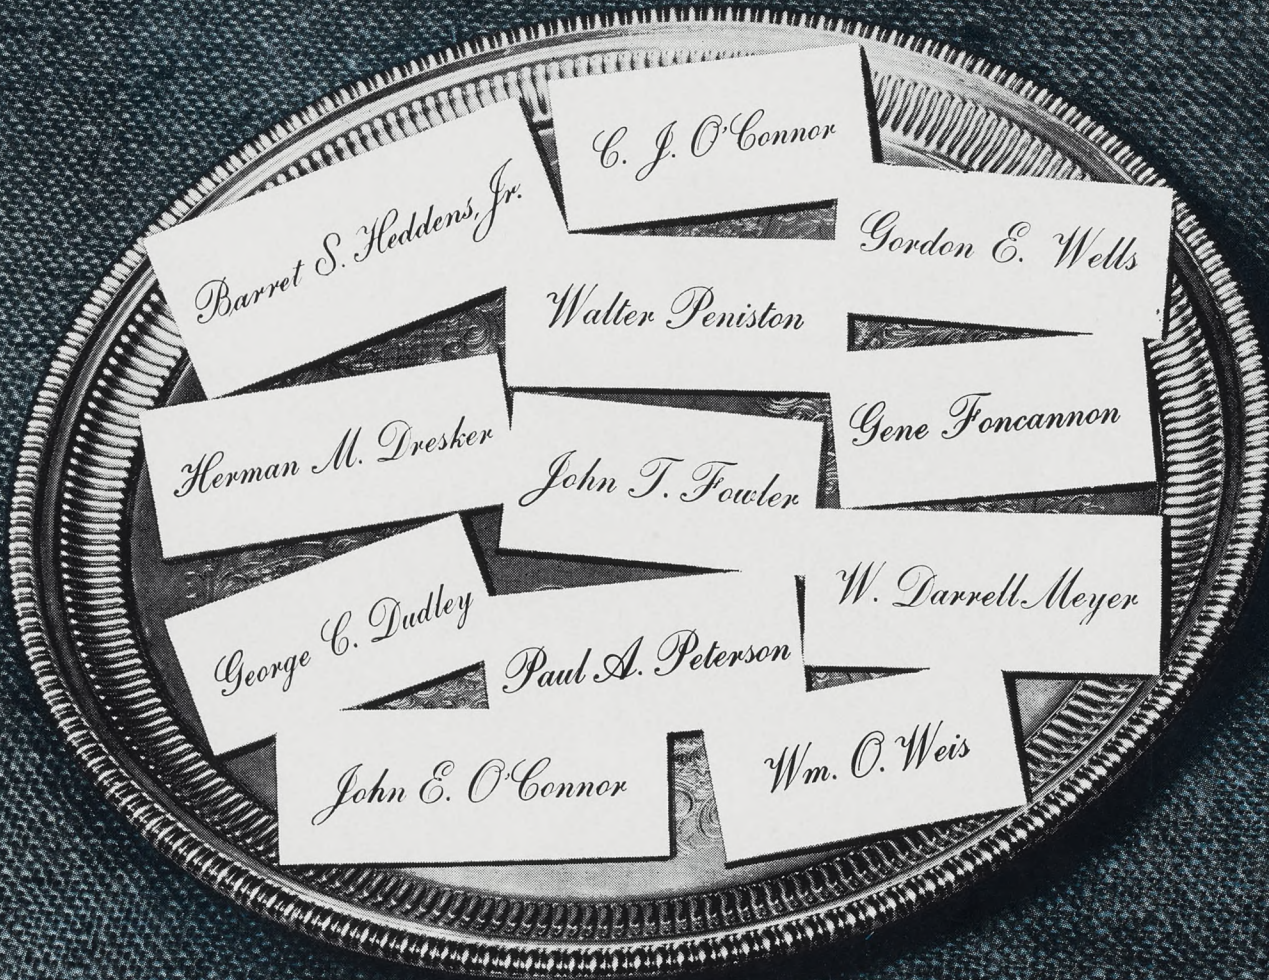 C. J. O'Connor
Barret S. Heddens, Jr.
Gordon E. Wells
Walter Peniston
Herman M. Dresker
John T. Fowler
Gene Foncannon
George C. Dudley
Paul A. Peterson
W. Darrell Meyer
John E. O'Connor
Wm. O. Weis